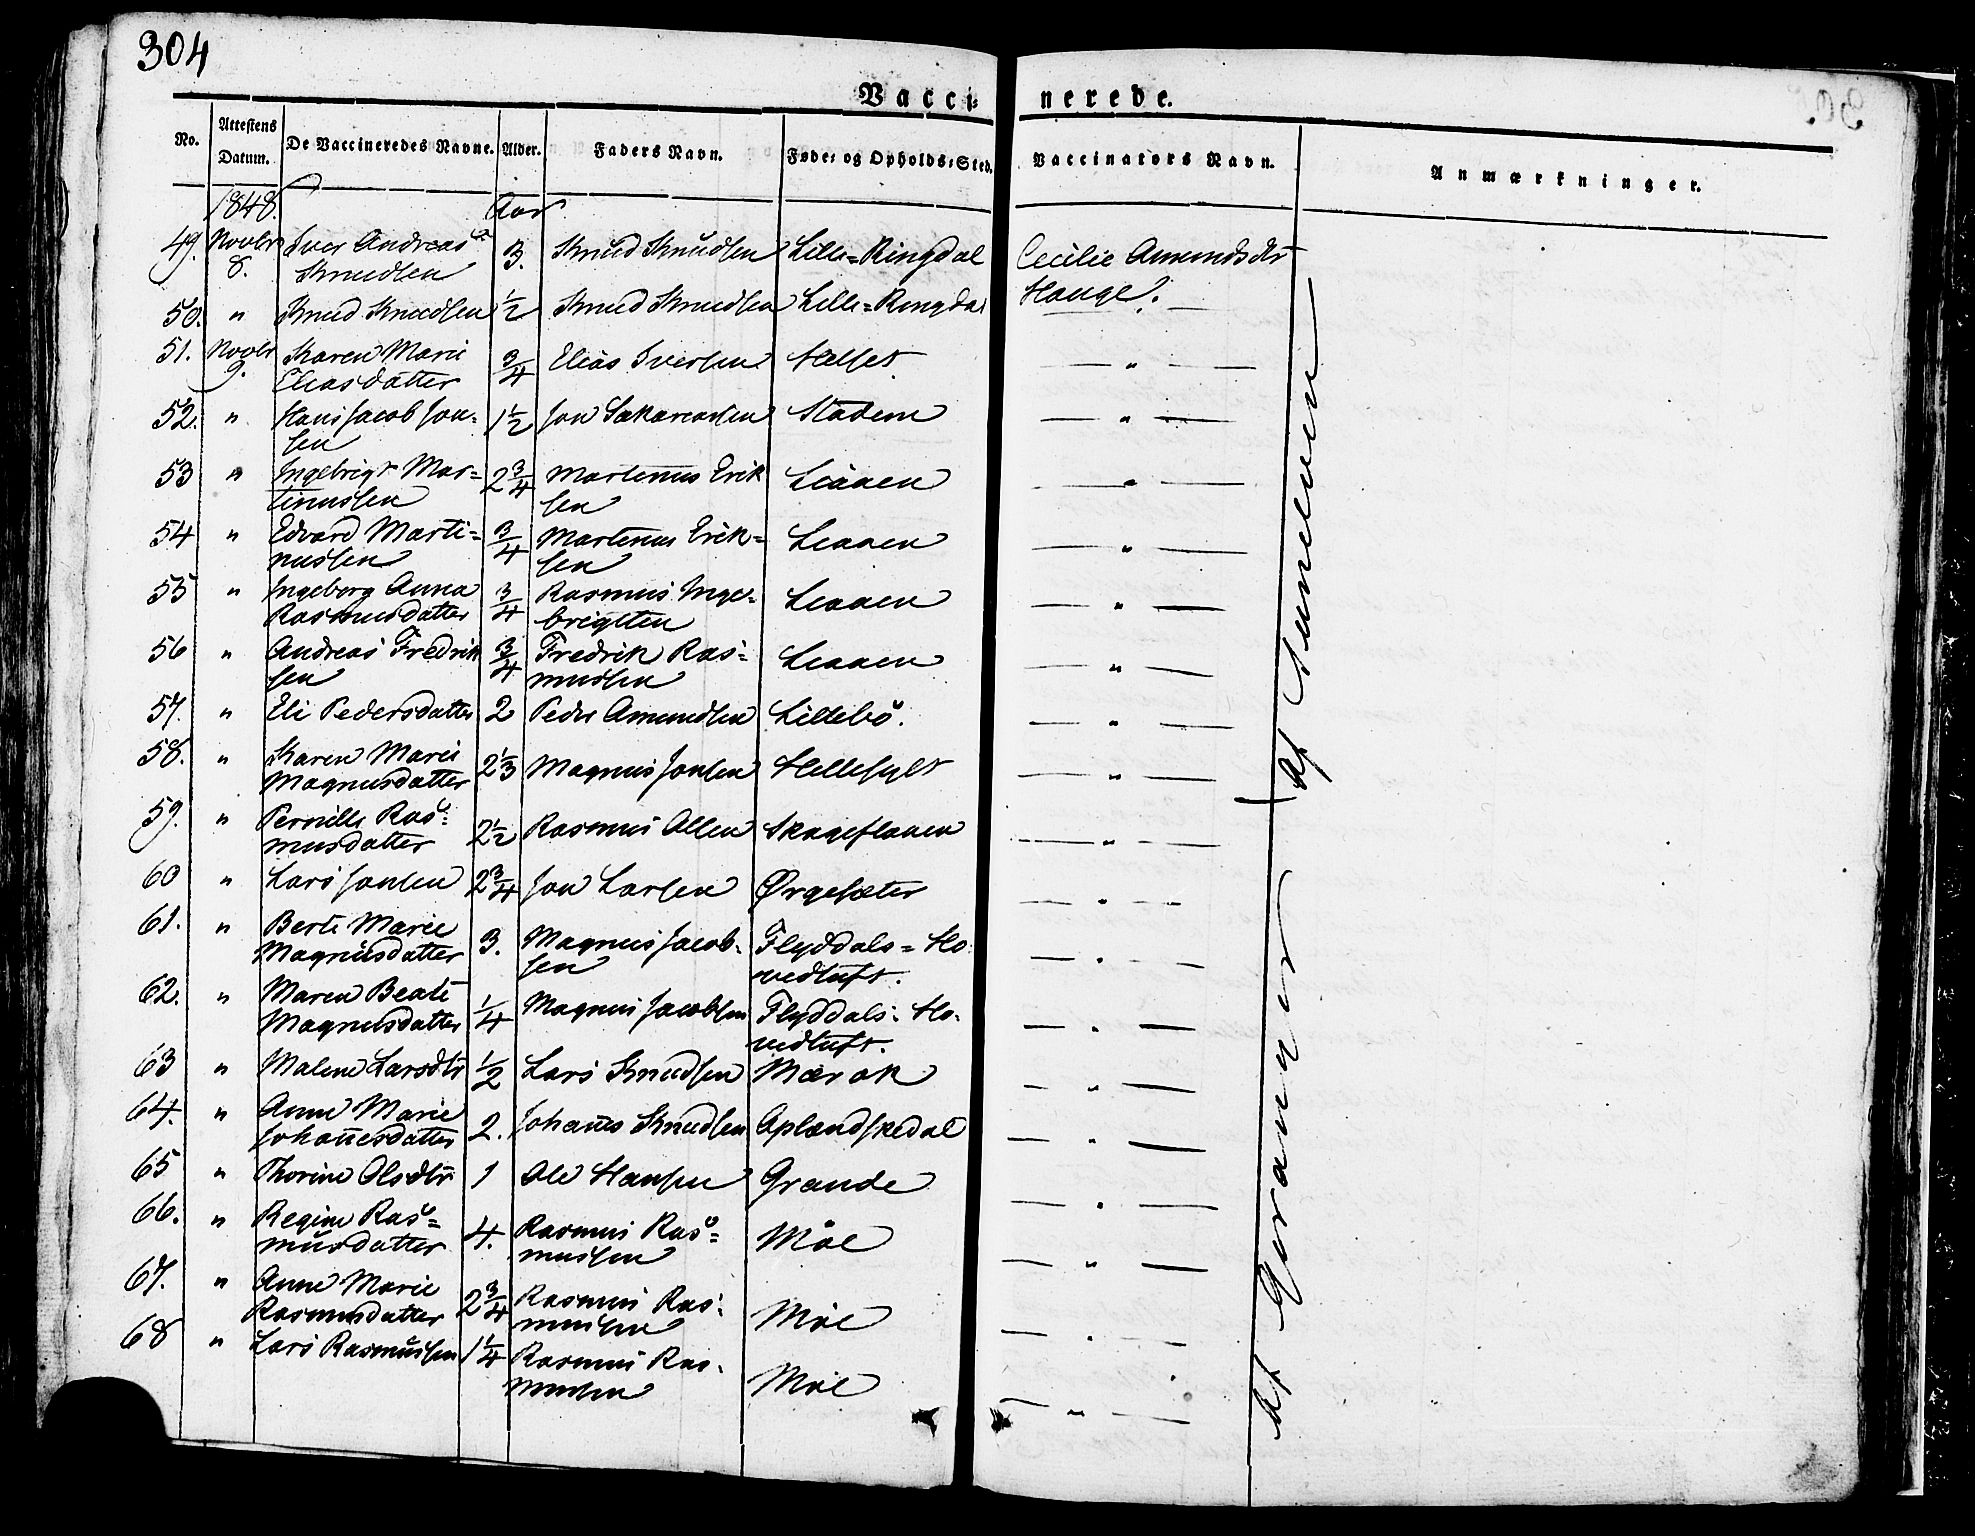 304
Vacci= nerede.
No. Attestens Datum. De Vaccineredes Navne. Alder. Faders Navn. Føde= og Opholds=Sted. Vaccinators Navn. Anmærkninger.
1848. Aar
49. Novbr 8. Iver Andreas Knudsen 3. Knud Knudsen Lille=Ringdal Cecilie Amundsdtr Hauge.
50. " Knud Knudsen 1/2 Knud Knudsen Lille=Ringdal —
51. Novbr 9. Karen Marie Eliasdatter 3/4 Elias Iversen Helset — " —
52. " Hans Jacob Jon=sen 1 1/2 Jon Sakariasen Stadem — " —
53 " Ingebrigt Mar=tinussen 2 3/4 Martinus Eriksen Liaaen — " —
54 " Edvard Marti=nussen 3/4 Martinus Erik=sen Liaaen — " —
55 " Ingeborg Anna Rasmusdatter 3/4 Rasmus Inge=brigtsen Liaaen — " —
56 " Andreas Fredriksen 3/4 Fredrik Ras=mussen Liaaen — " —
57. " Eli Pedersdatter 2 Peder Amundsen Lillebö. — " —
58. " Karen Marie Magnusdatter 2 1/3 Magnus Jonsen Hellesylt — " —
59. " Pernille Ras=musdatter 2 1/2 Rasmus Olsen Skageflaaen — " —
60 " Lars Jonsen 2 3/4 Jon Larsen Ørgesæter — " —
61. " Berte Marie Magnusdatter 3. Magnus Jacob=sen Flyddals=Ho=vedtuft. — " —
62. " Maren Beate Magnusdatter 1/4 Magnus Jacobsen Flyddals=Ho=vedtuft. — " —
63 " Malene Larsdtr 1/2 Lars Knudsen Mærok — " —
64. " Anne Marie Johannesdatter 2. Johannes Knudsen Aplandskedal — " —
65 " Thorine Olsdtr 1 Ole Hansen Grande — " —
66. " Regine Ras=musdatter 4. Rasmus Ras=mussen Möe — " —
67. " Anne Marie Rasmusdatter 2 3/4 Rasmus Ras=mussen Möe — " —
68 " Lars Rasmussen 1 1/4 Rasmus Ras=mussen Möe — " —
af Sunelven
af Geranger